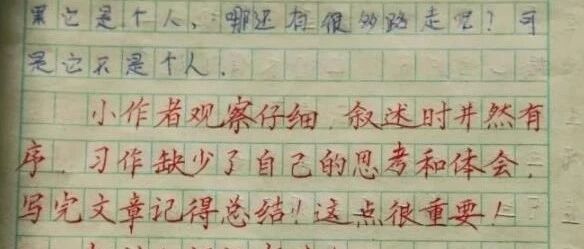 果它是个人，哪还有很多路走呢？可
是它不是个人.
小作者观察仔细，叙述时井然有
序，习作缺少了自己的思考和体会，
写完文章记得总结！这点很重要！